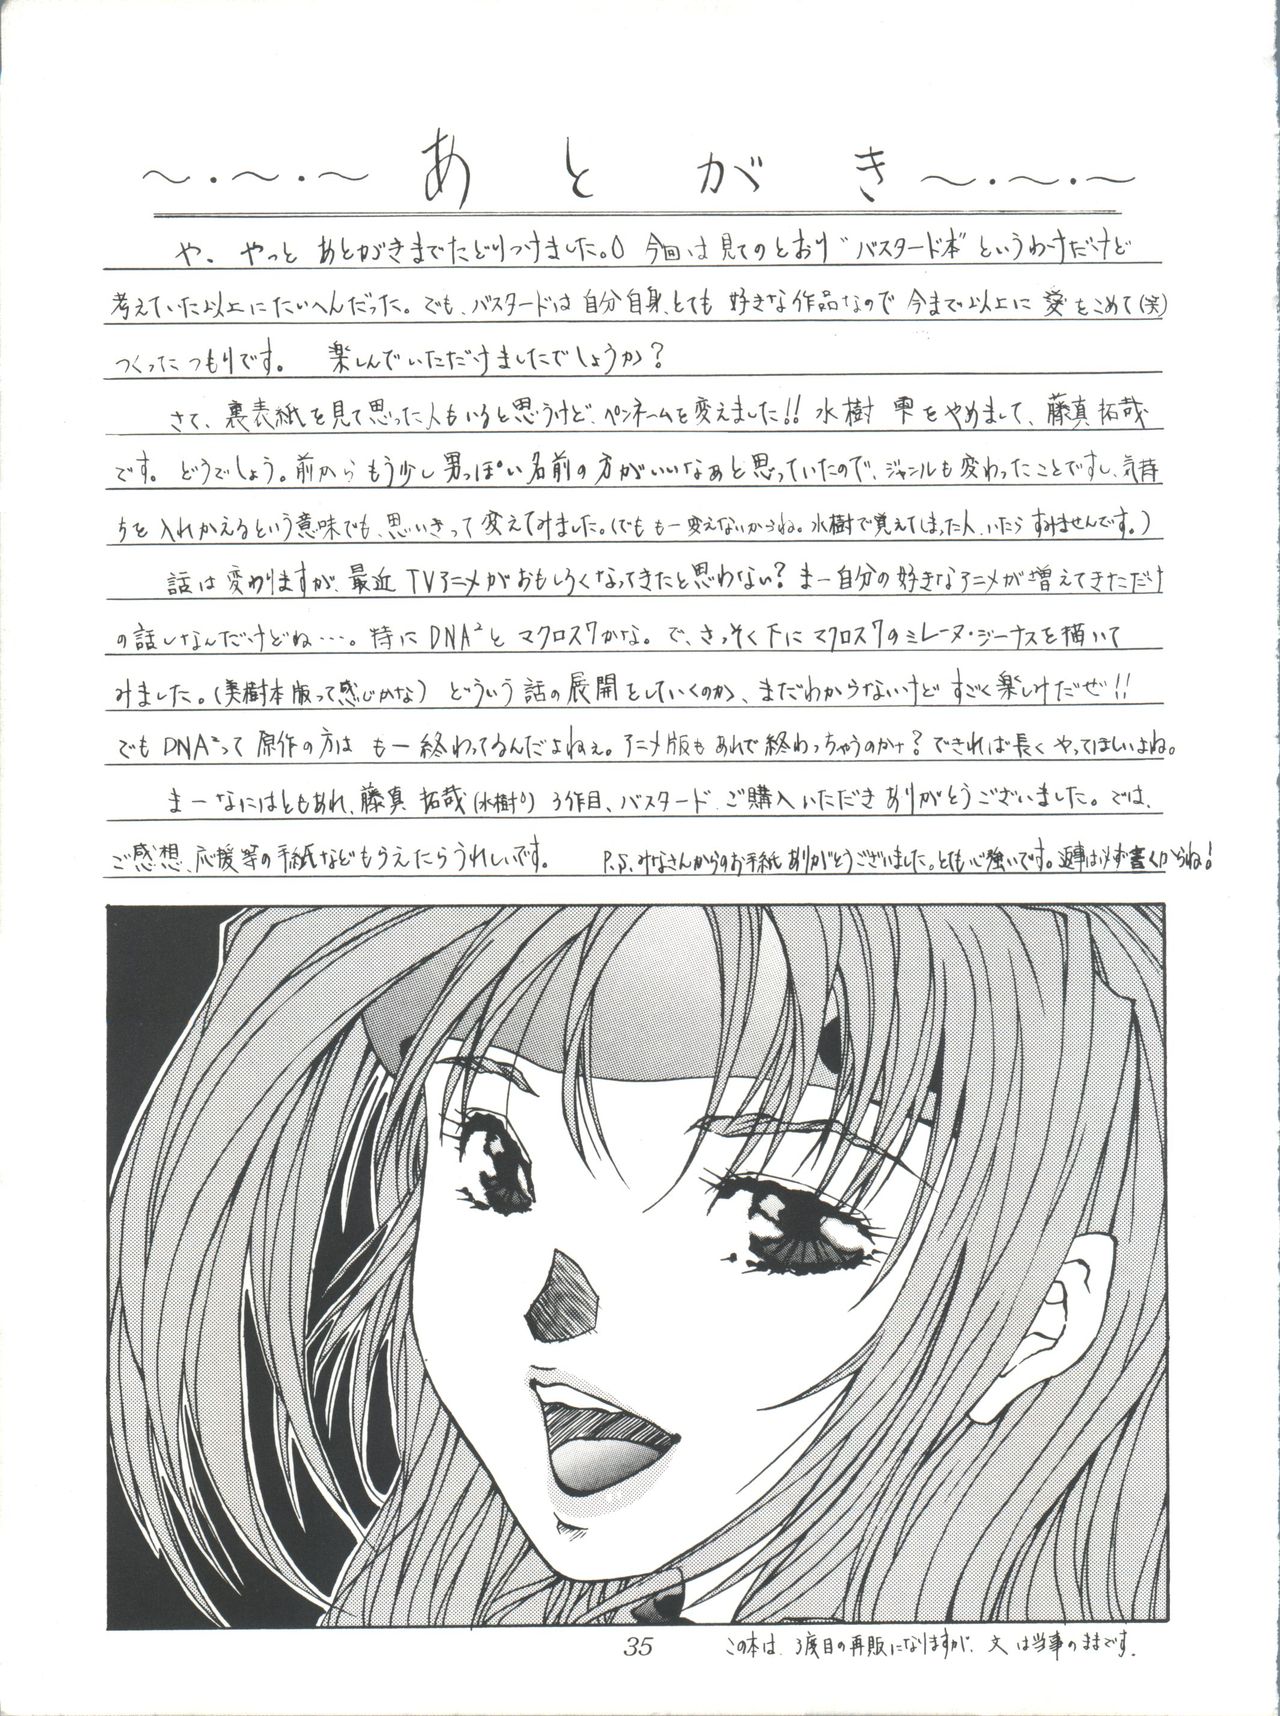 ～・～・～ あとがき ～・～・～
や、やっと あとがきまでたどりつけました。 今回は見てのとおり"バスタード本"というわけだけど
考えていた以上にたいへんだった。でも、バスタードは自分自身、とても好きな作品なので今まで以上に愛をこめて(笑)
つくったつもりです。 楽しんでいただけましたでしょうか？
さて、裏表紙を見て思った人もいると思うけど、ペンネームを変えました!! 水樹 雫をやめまして、藤真拓哉
です。どうでしょう。前からもう少し男っぽい名前の方がいいなぁと思っていたので、ジャンルも変わったことですし、気持
ちを入れかえるという意味でも、思いきって変えてみました。(でももー変えないからね。水樹で覚えてしまった人、いたらすみませんです。)
話は変わりますが、最近TVアニメがおもしろくなってきたと思わない？まー自分の好きなアニメが増えてきただけ
の話しなんだけどね…。特にDNA²とマクロス7かな。で、さっそく下にマクロス7のミレーヌ・ジーナスを描いて
みました。(美樹本版って感じかな) どういう話の展開をしていくのか、まだわからないけどすごく楽しみだぜ!!
でもDNA²って原作の方はもー終わってるんだよねぇ。アニメ版もあれで終わっちゃうのかナ？できれば長くやってほしいよね。
まーなにはともあれ、藤真 拓哉(水樹) 3作目、バスタード ご購入いただきありがとうございました。では、
ご感想、応援等の手紙などもらえたらうれしいです。 P.S.みなさんからのお手紙ありがとうございました。とても心強いです。返事は必ず書くからね！
35
この本は、3度目の再販になりますが、文は当事のままです。